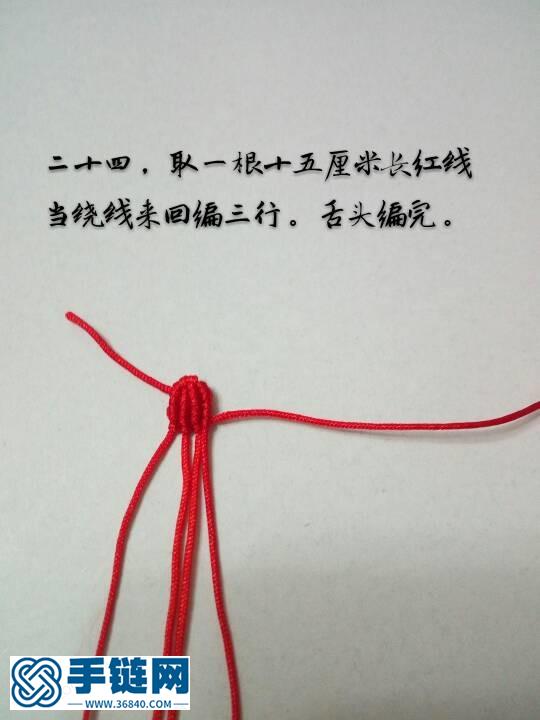 二十四，取一根十五厘米长红线
当绕线来回编三行。舌头编完。
手链网
WWW.36840.COM